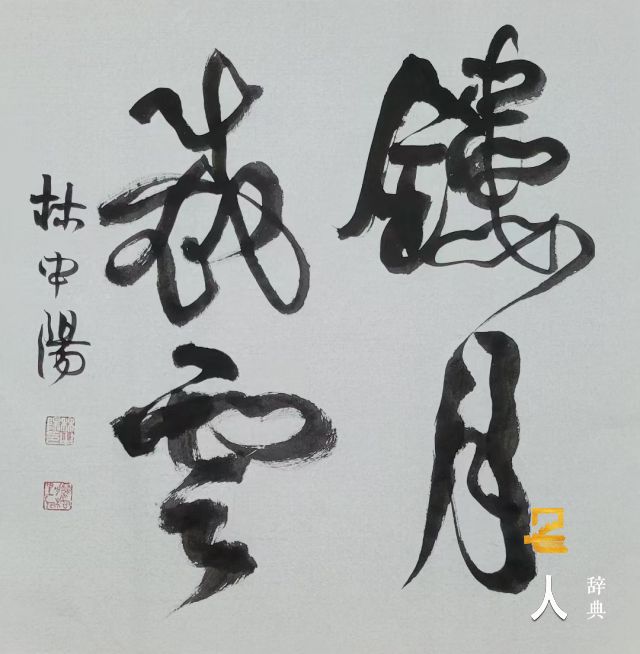 鏤月
裁雲
林申陽
名人
辞典